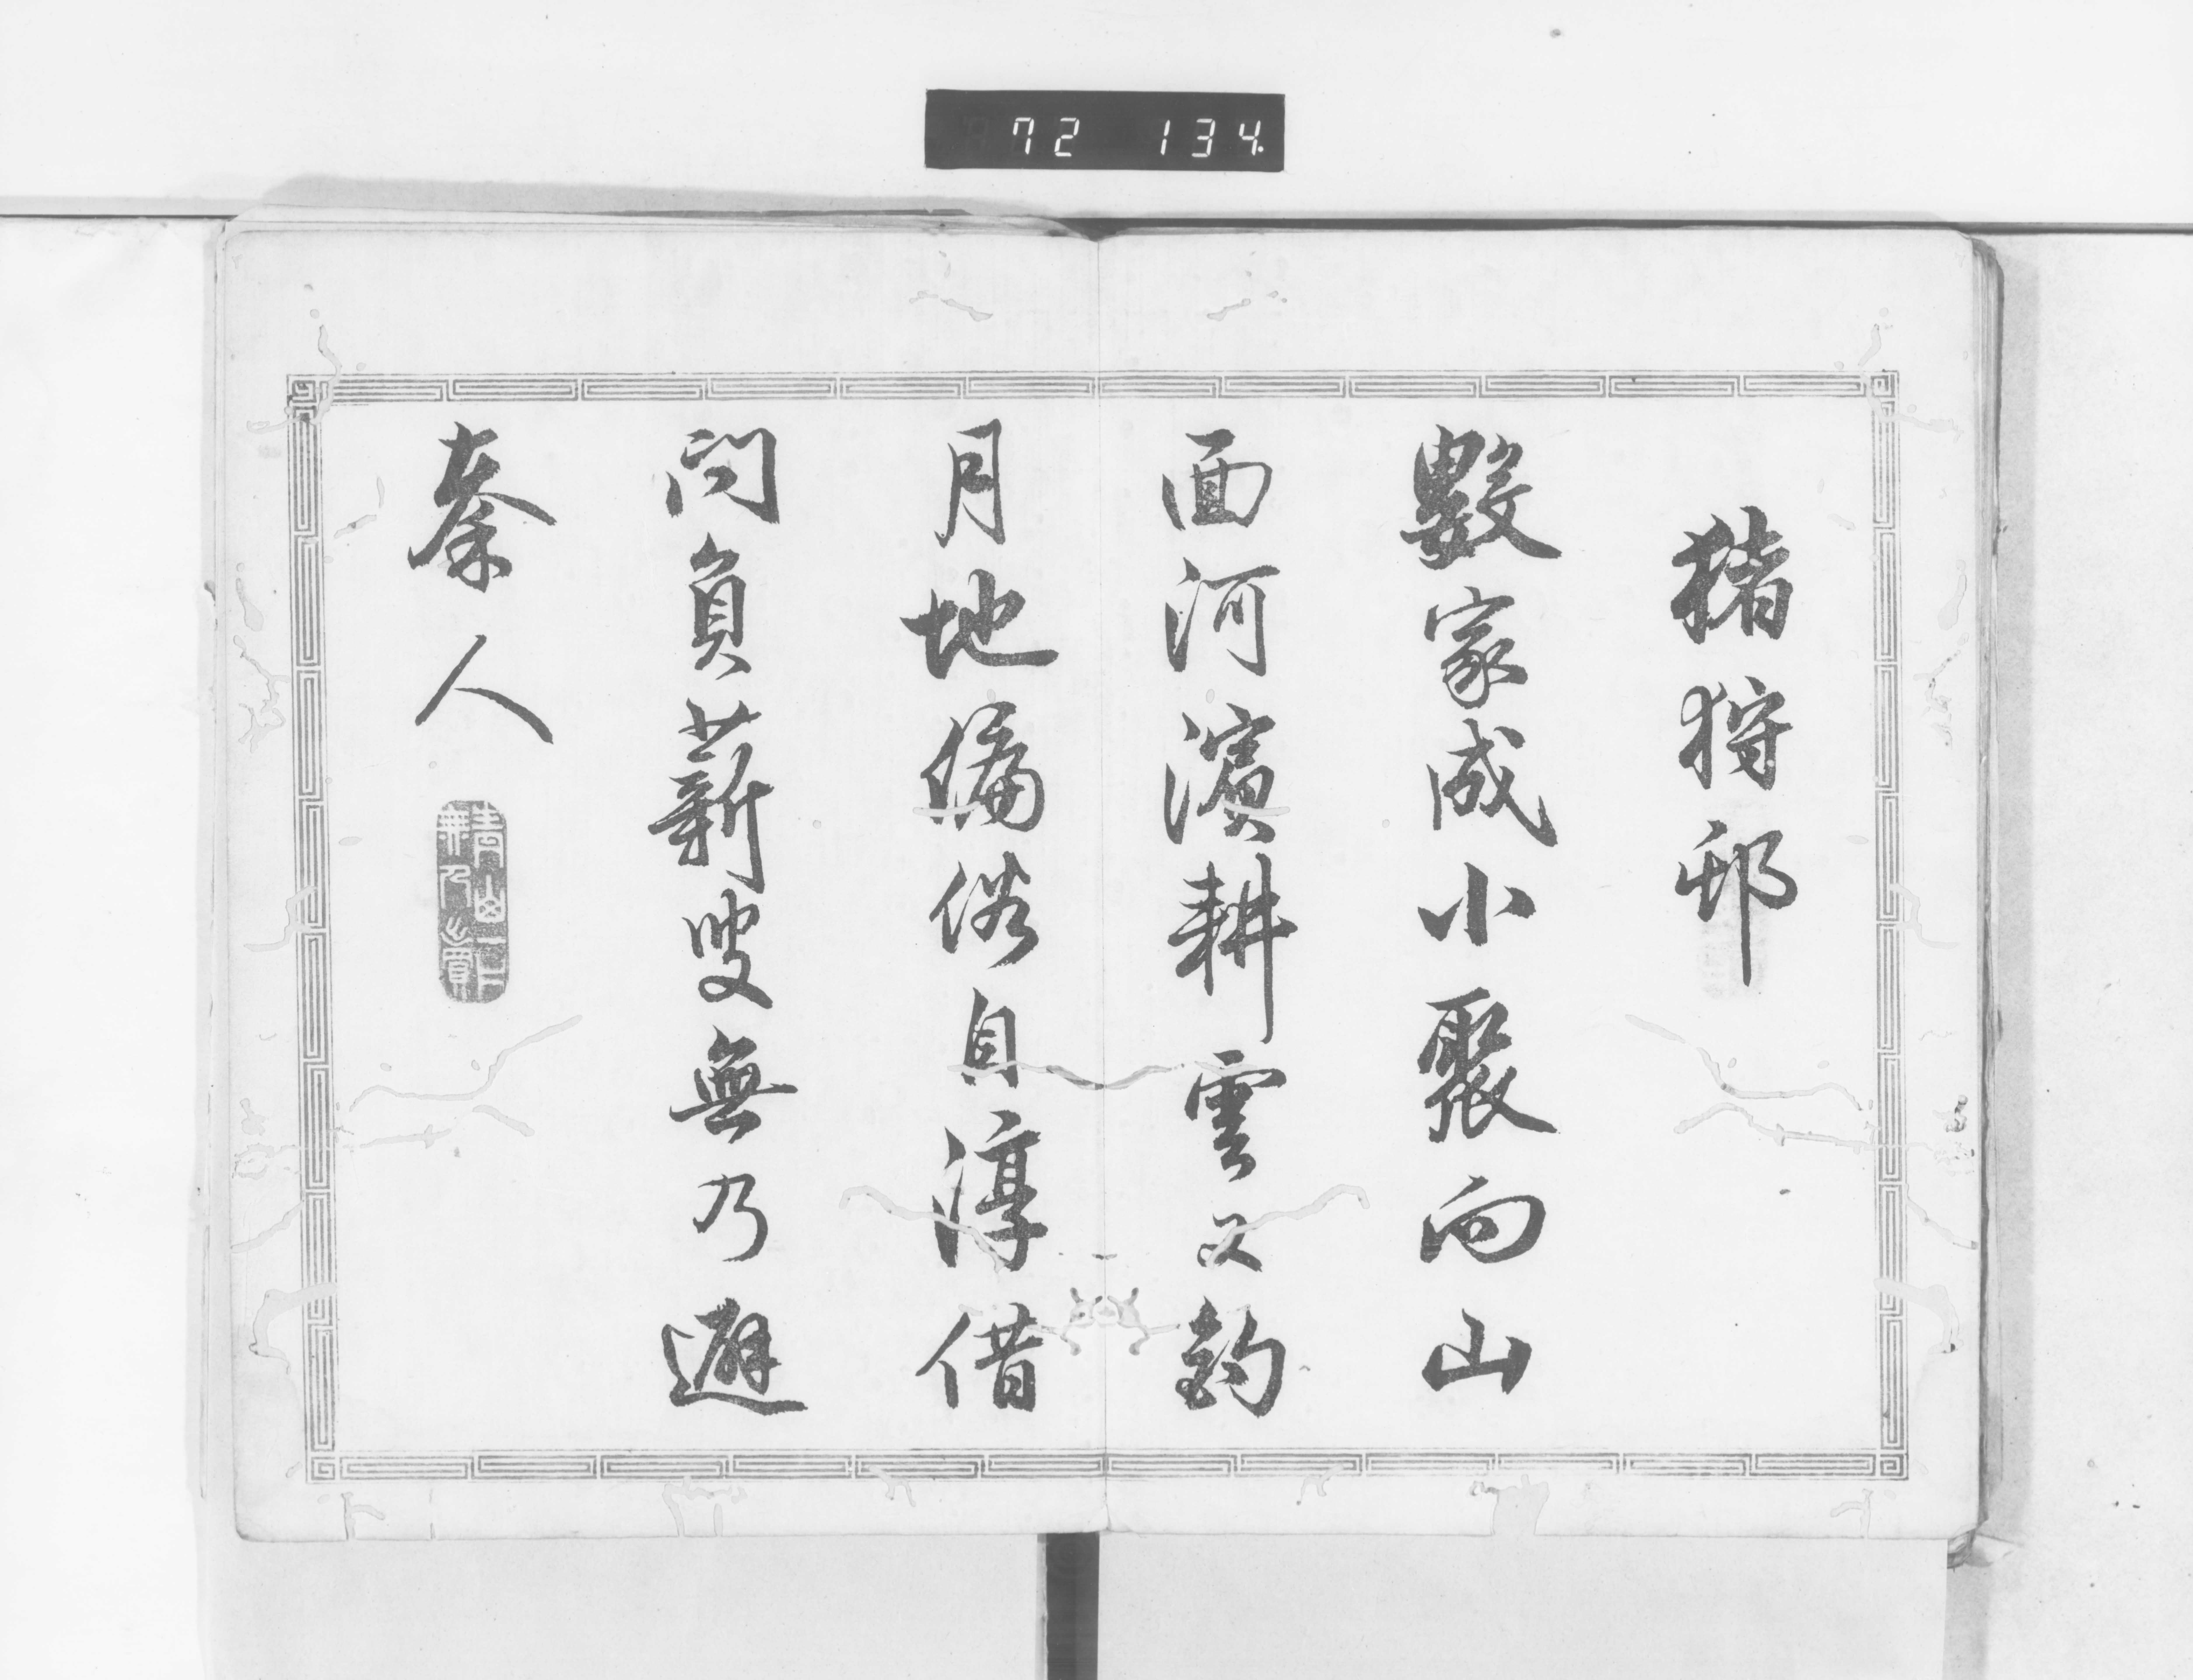 72 134
猪狩邨
數家成小聚向山
面河濱耕雲又釣
月地偏俗自淳借
問負薪叟無乃避
秦人